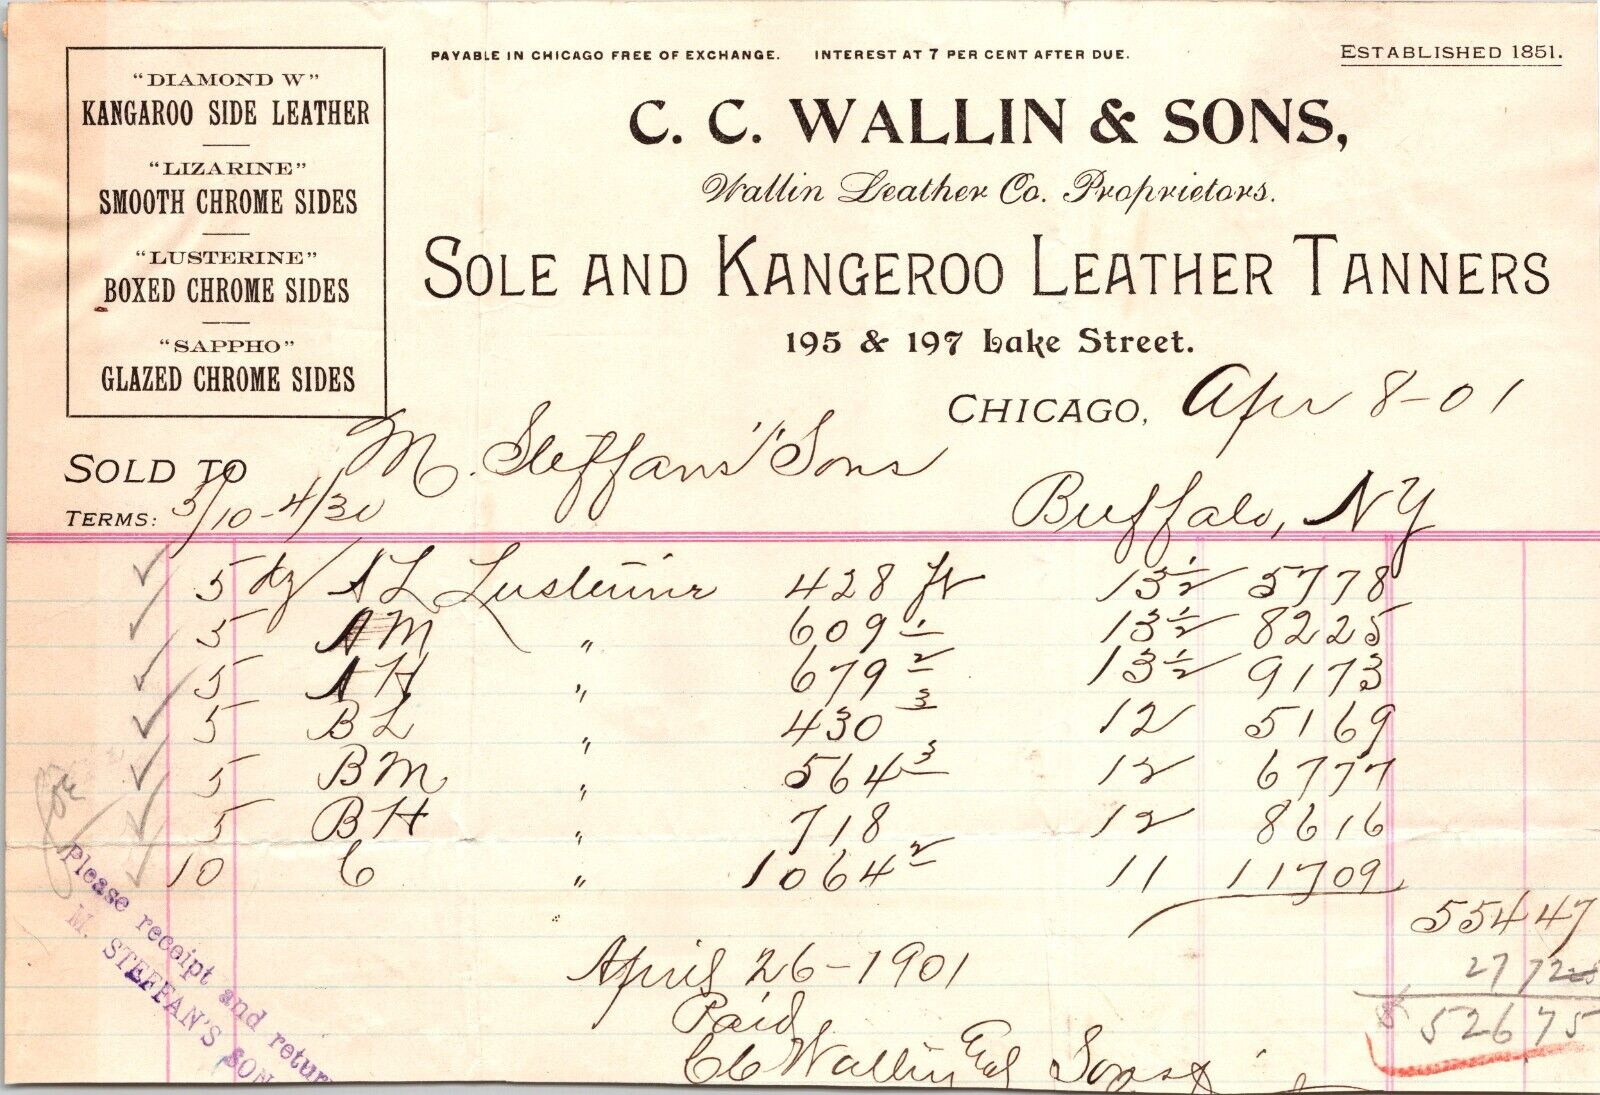 PAYABLE IN CHICAGO FREE OF EXCHANGE. INTEREST AT 7 PER CENT AFTER DUE.
ESTABLISHED 1851.
"DIAMOND W"
KANGAROO SIDE LEATHER
"LIZARINE"
SMOOTH CHROME SIDES
"LUSTERINE"
BOXED CHROME SIDES
"SAPPHO"
GLAZED CHROME SIDES
C. C. WALLIN & SONS,
Wallin Leather Co. Proprietors.
SOLE AND KANGEROO LEATHER TANNERS
195 & 197 Lake Street.
CHICAGO, Apr 8-01
SOLD TO M. Steffans' Sons
TERMS: 5/10-4/30 Buffalo, NY
5 dz/ AL Lusterine 428 ft 13 1/2 5778
5 AM " 609 1 13 1/2 8225
5 AH " 679 2 13 1/2 9173
5 BL " 430 3 12 5169
5 BM " 564 3 12 6777
5 BH " 718 12 8616
10 C " 1064 2 11 11709
55447
2772
$ 52675
April 26-1901
Paid
CC Wallin and Sons
OK
Please receipt and return
M. STEFFAN'S SON